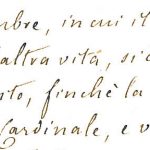 mbre, in cui il
altra vita, si c
to, finchè la
Cardinale, e v